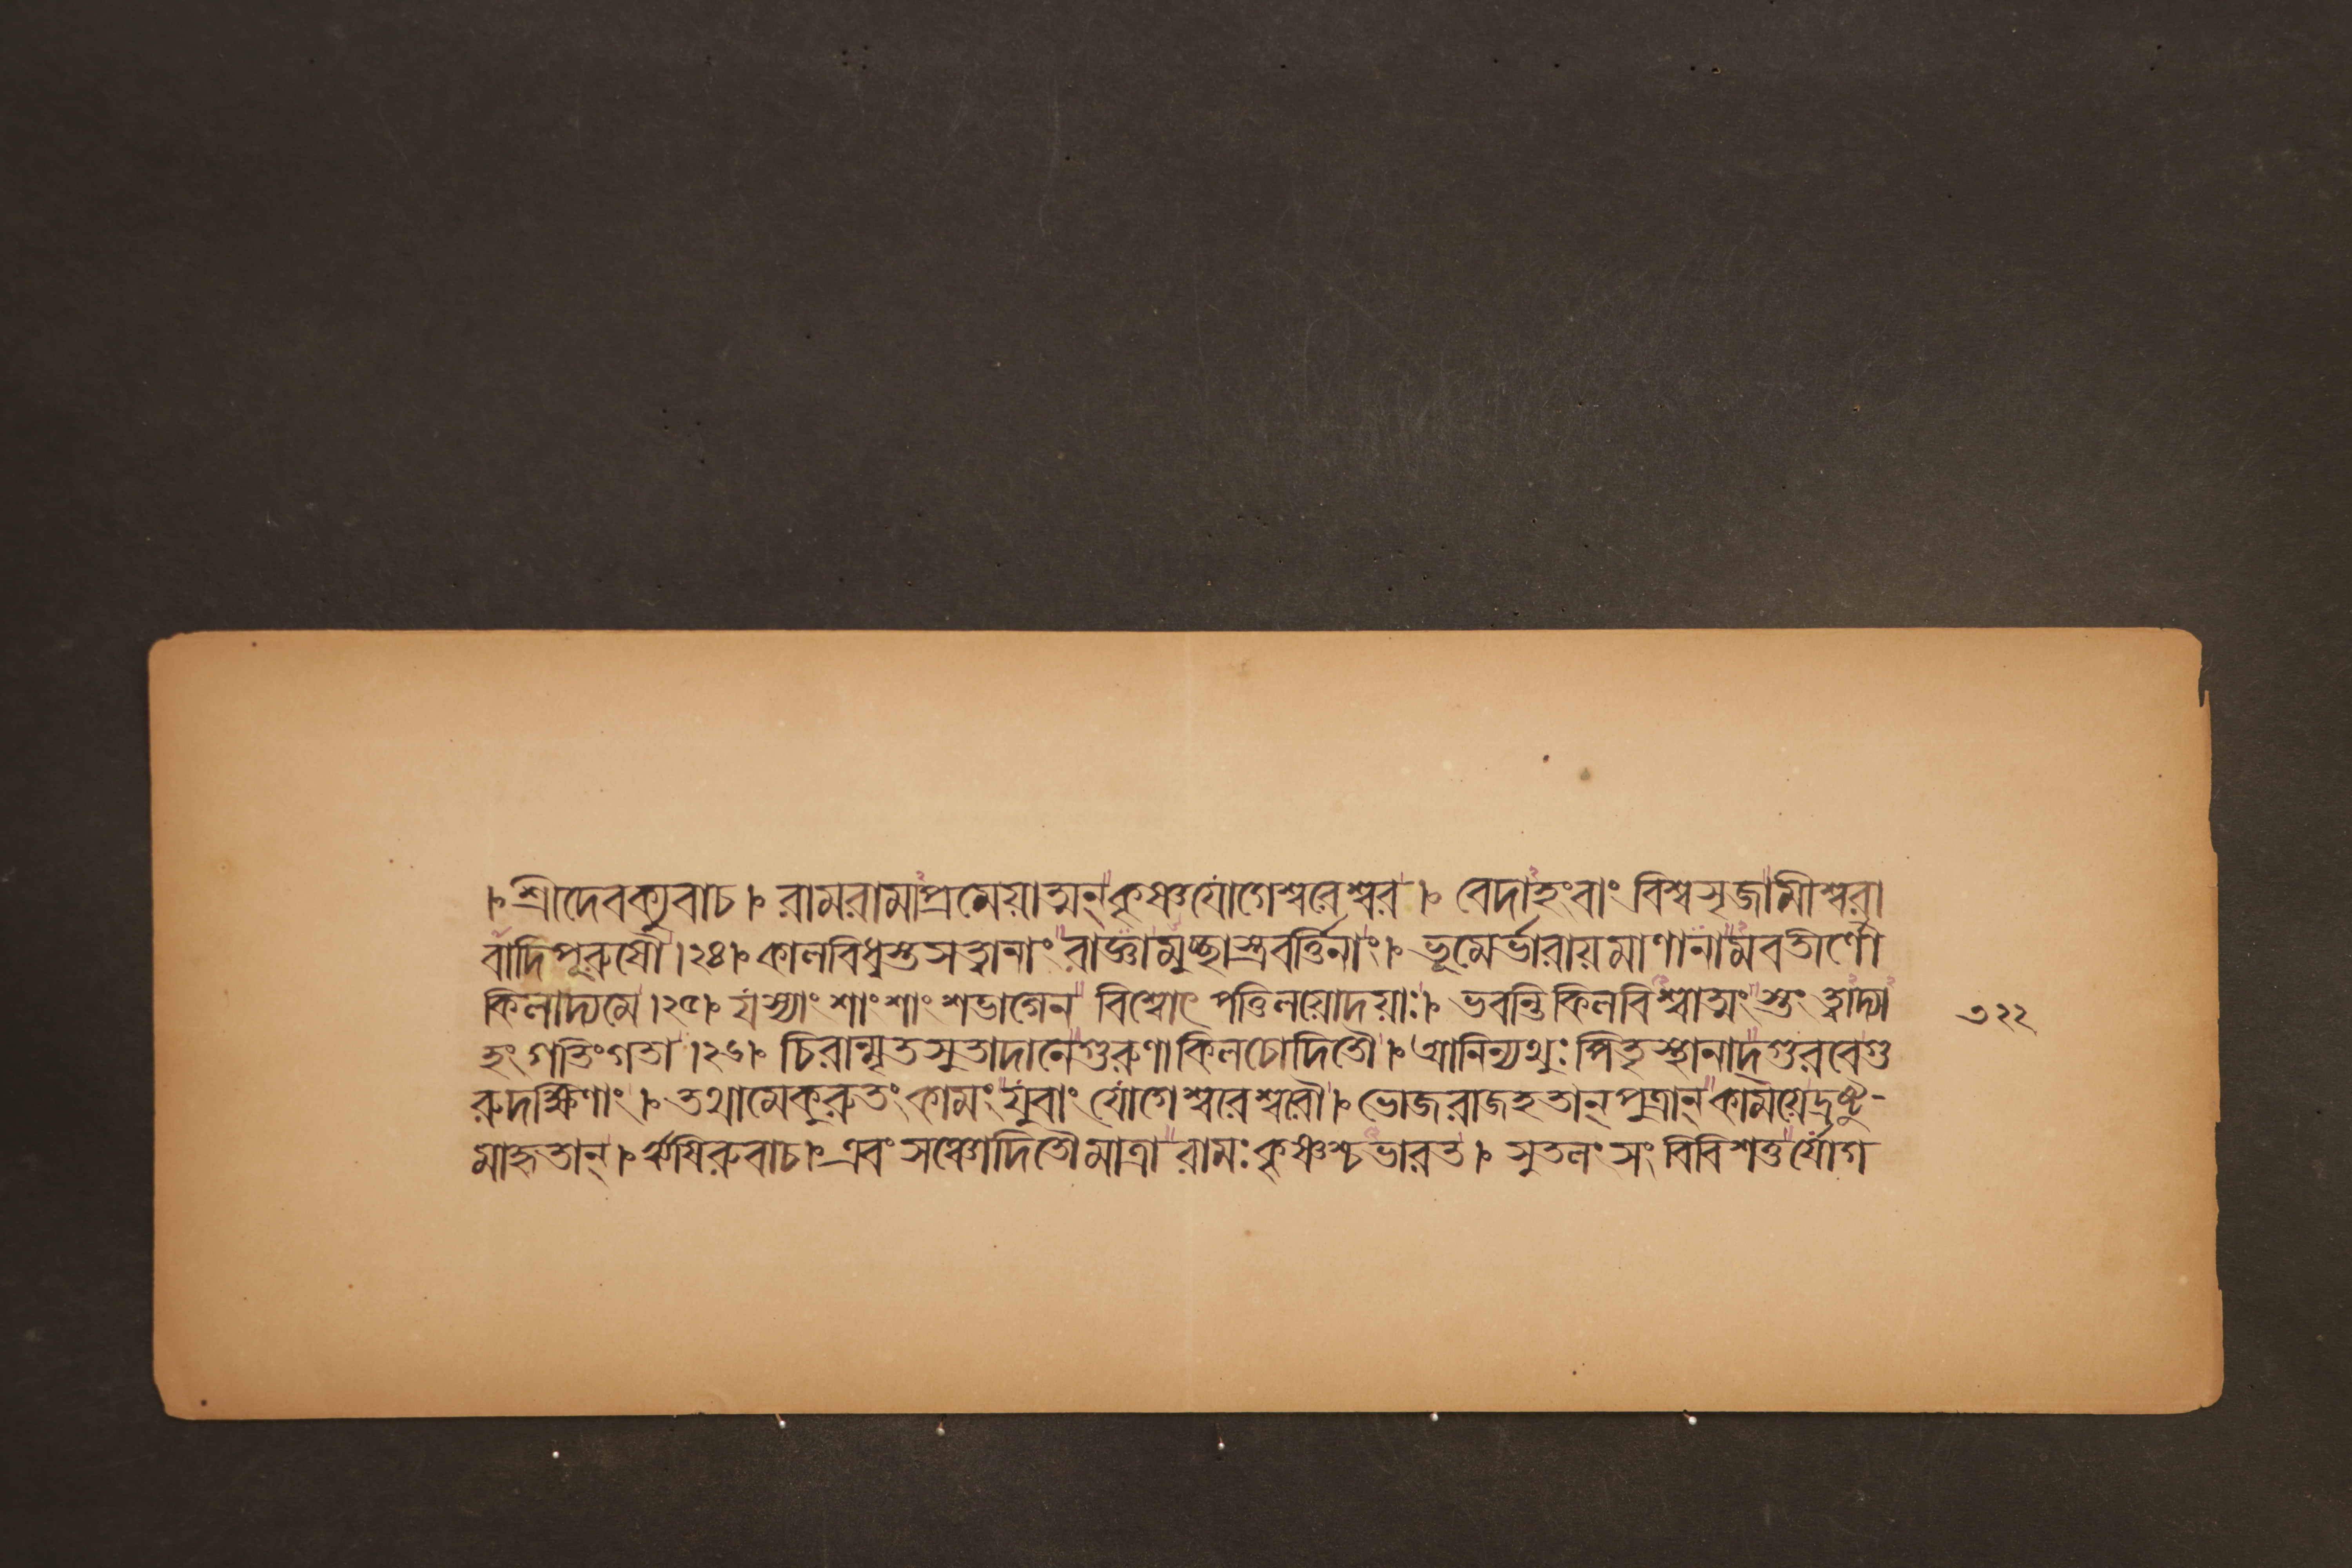 । শ্রীদেবক্যুবাচ । রামরামাপ্রমেয়াত্মন্ কৃষ্ণযোগেশ্বরেশ্বর । বেদাহংবাং বিশ্বসৃজামীশ্বরা
বাদিপূরুষৌ ।২৪। কালবিধ্বস্তসত্ত্বানাং রাজ্ঞামুচ্ছাস্ত্রবর্ত্তিনাং । ভূমের্ভারায়মাণানামবতীর্ণৌ
কিলাদ্যমে ।২৫। যস্যাংশাংশাংশভাগেন বিশ্বোৎপত্তিলয়োদয়াঃ । ভবন্তি কিলবিশ্বাত্মং স্তং ত্বাদ্যা
হং গতিংগতা ।২৬। চিরান্মৃতসুতাদানেগুরুণা কিলচোদিতৌ । আনিন্যথুঃ পিতৃস্থানাদ্গুরবেগু
রুদক্ষিণাং । তথামেকুরুতং কামং যুবাং যোগেশ্বরেশ্বরৌ । ভোজরাজহতান্ পুত্রান্ কাময়েদ্রষ্টু-
মাহৃতান্ । ঋষিরুবাচ । এবং সঞ্চোদিতৌমাত্রা রামঃ কৃষ্ণশ্চভারত । সুতলং সংবিবিশতুর্যোগ
৩২২